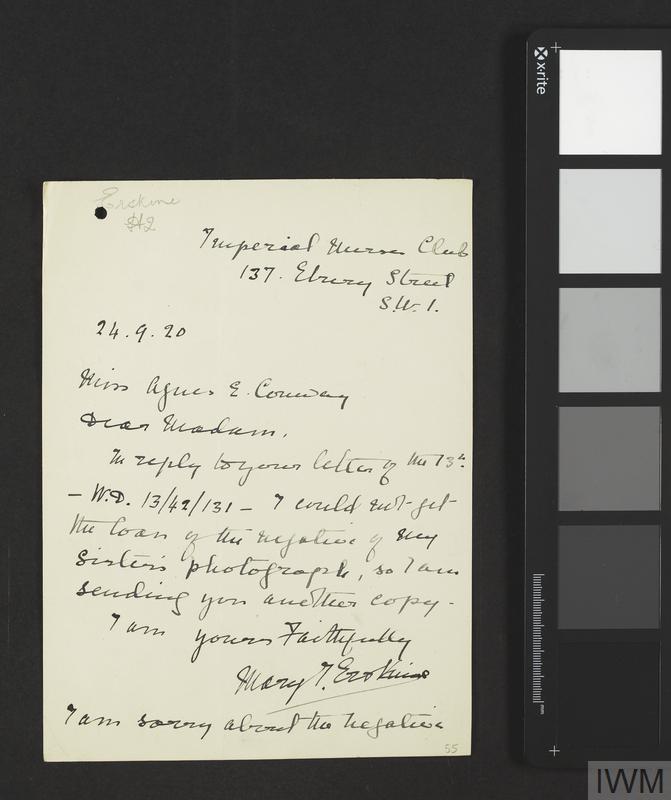 Erskine
Imperial Nurses Club
137. Ebury Street
S.W.1.
24.9.20
Miss Agnes E. Conway
Dear Madam,
In reply to your letter of the 13th
- W.D. 13/42/131 - I could not get
the loan of the negative of my
Sister's photograph, so I am
sending you another copy.
I am yours Faithfully
Mary T. Erskine
I am sorry about the negative
55
x-rite
mm
IWM